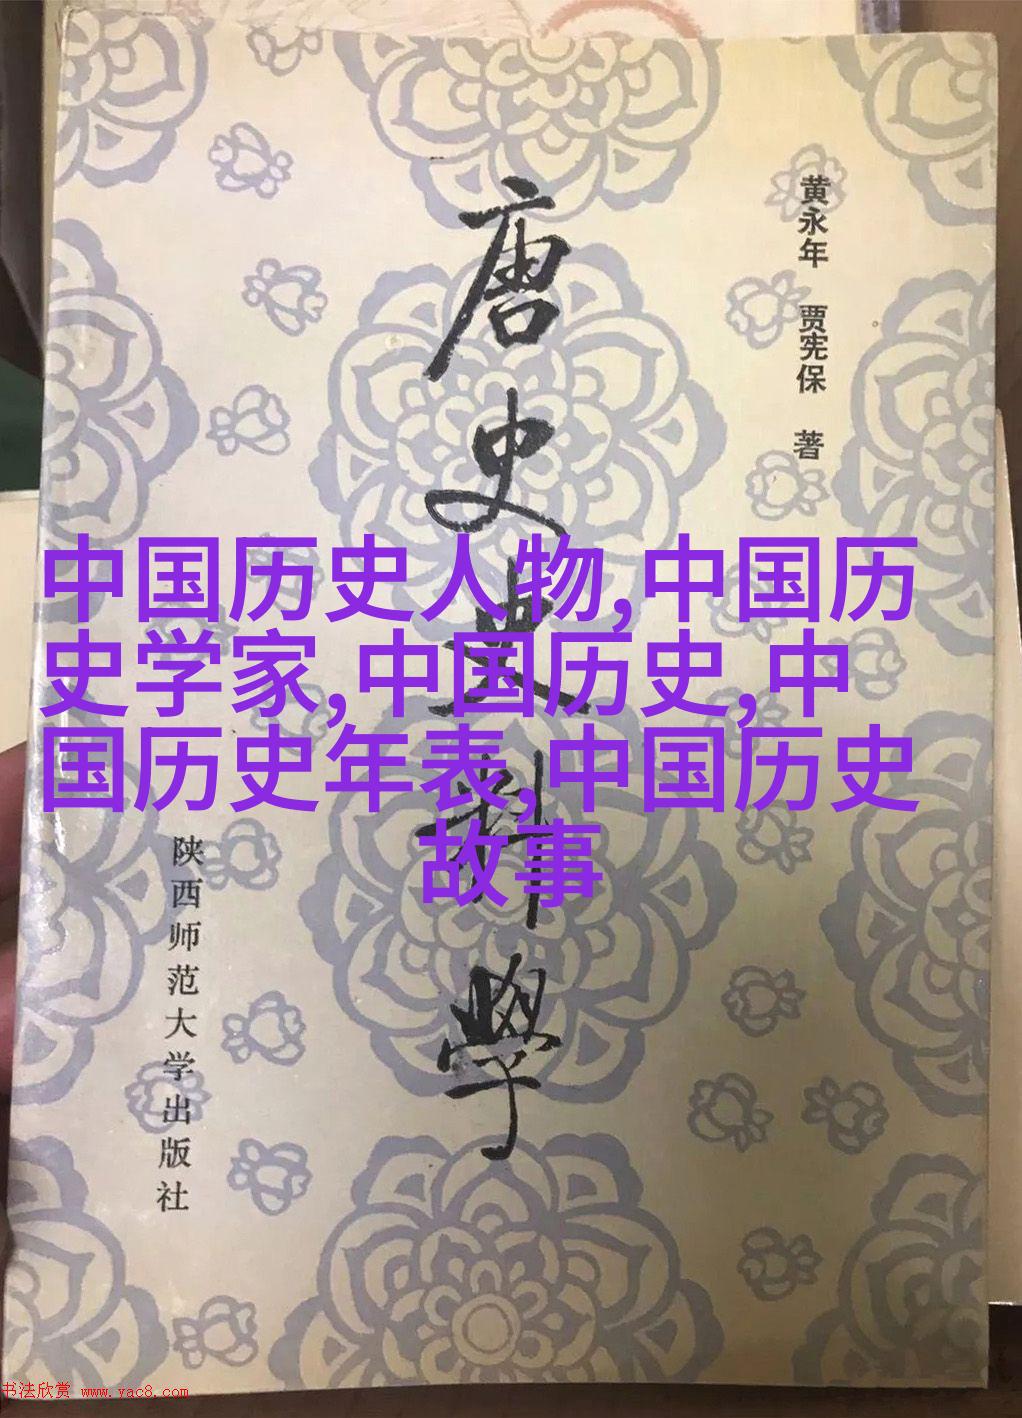 黄永年 贾宪保 著
唐史史料學
中国历史人物,中国历
史学家,中国历史,中
国历史年表,中国历史
故事
陕西师范大学出版社
书法欣赏 www.yac8.com